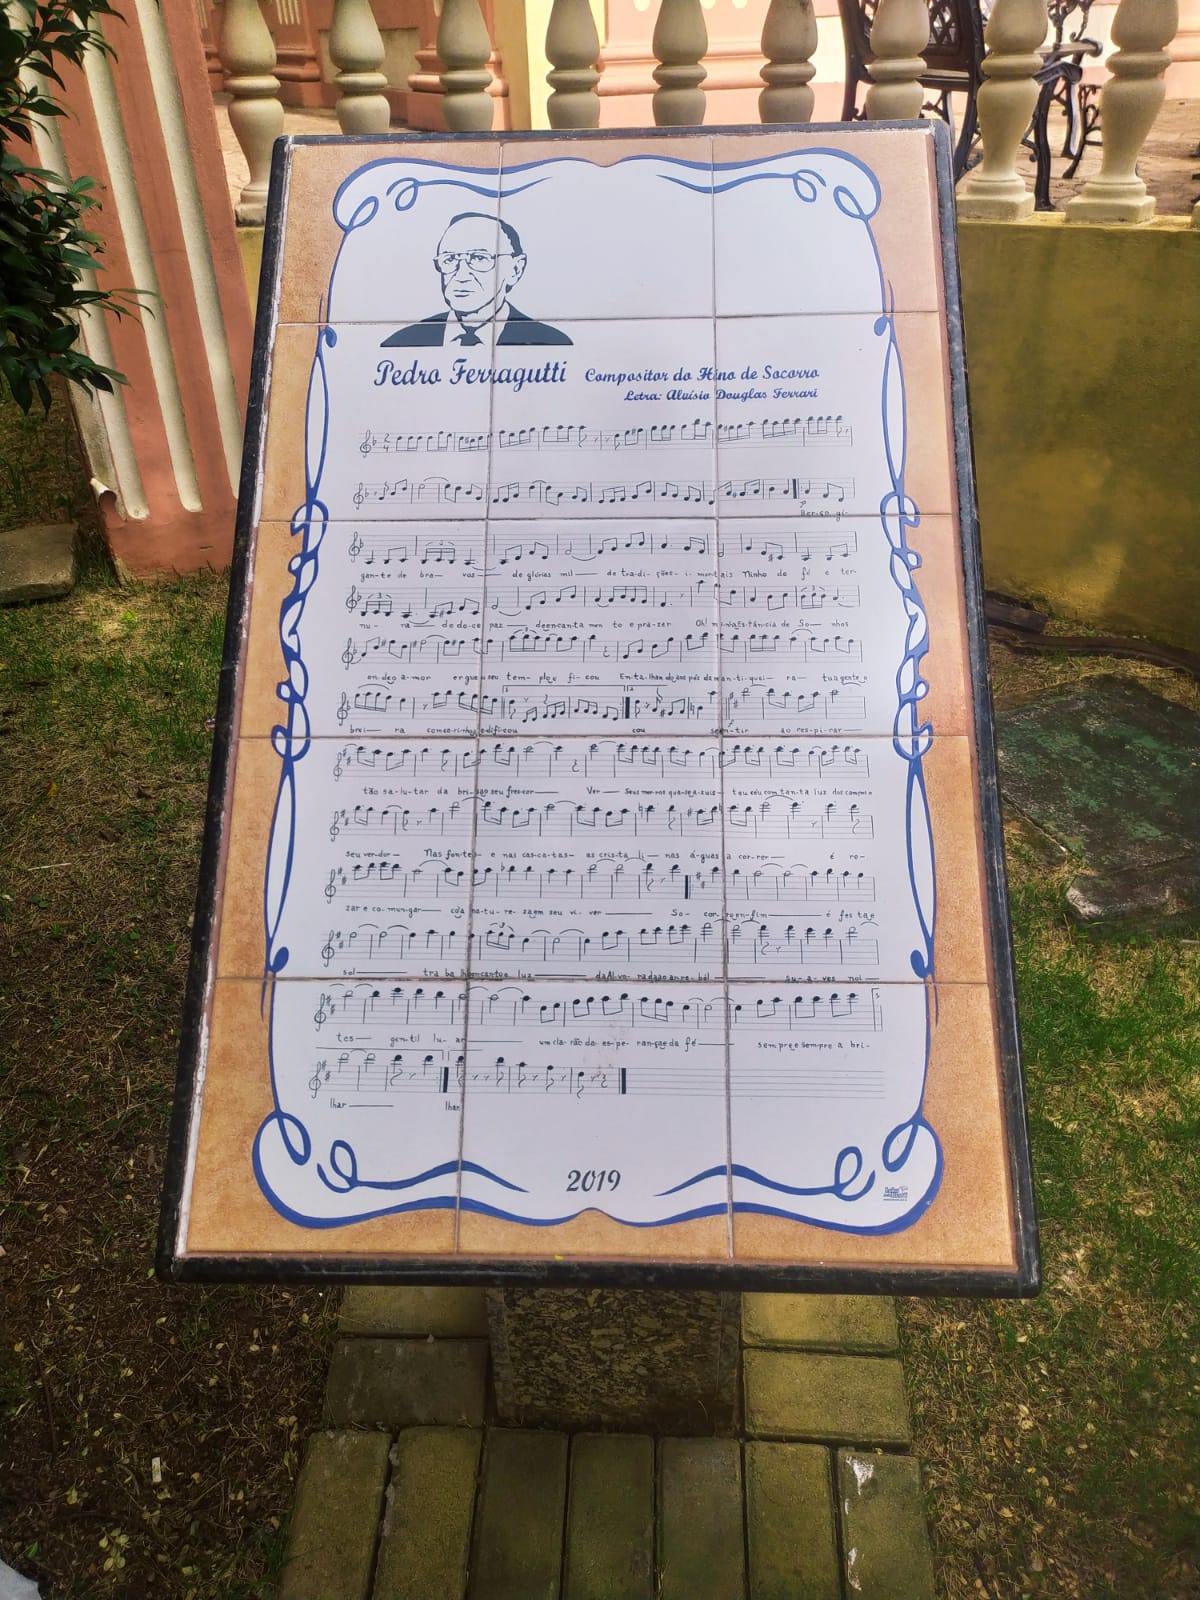 Pedro Ferragutti Compositor do Hino de Socorro
Letra: Aluísio Douglas Ferrari
Berço, gi-
gan-te de bra- vos- de glórias mil- de tra-di- ções- i- mortais Ninho de fé e ter-
nu- ra- de doce paz- de encanta men to e pra-zer Oh! minha Es-tân-cia de So- nhos
on-de o a-mor ergueu seu tem- plo e fi- cou Enta-lhan do aos pés da man-ti-quei- ra- tua gente
brei- ra cou sen-tir ao res-pi-rar-
tão sa-lu-tar da bri-sa o seu frescor- Ver- seus morros quase a-zuis- teu céu com tan-ta luz dos campos o
seu ver-dor- Nas fontes- e nas cas-ca-tas- as cris-ta li- nas á-guas a cor-rer- é ro-
zar e co-mun-gar- co'a na-tu-re-za em seu vi-ver- So- cor-ro en-fim- é fes ta e
sol- tra ba lho en canto e luz- da Al-vo-rada ao ar-re-bol- su-a-ves noi-
tes- gen-til lu-ar um cla-rão da es-pe-ran-ça e da fé- sempre e sempre a bri-
lhar- lhar
2019